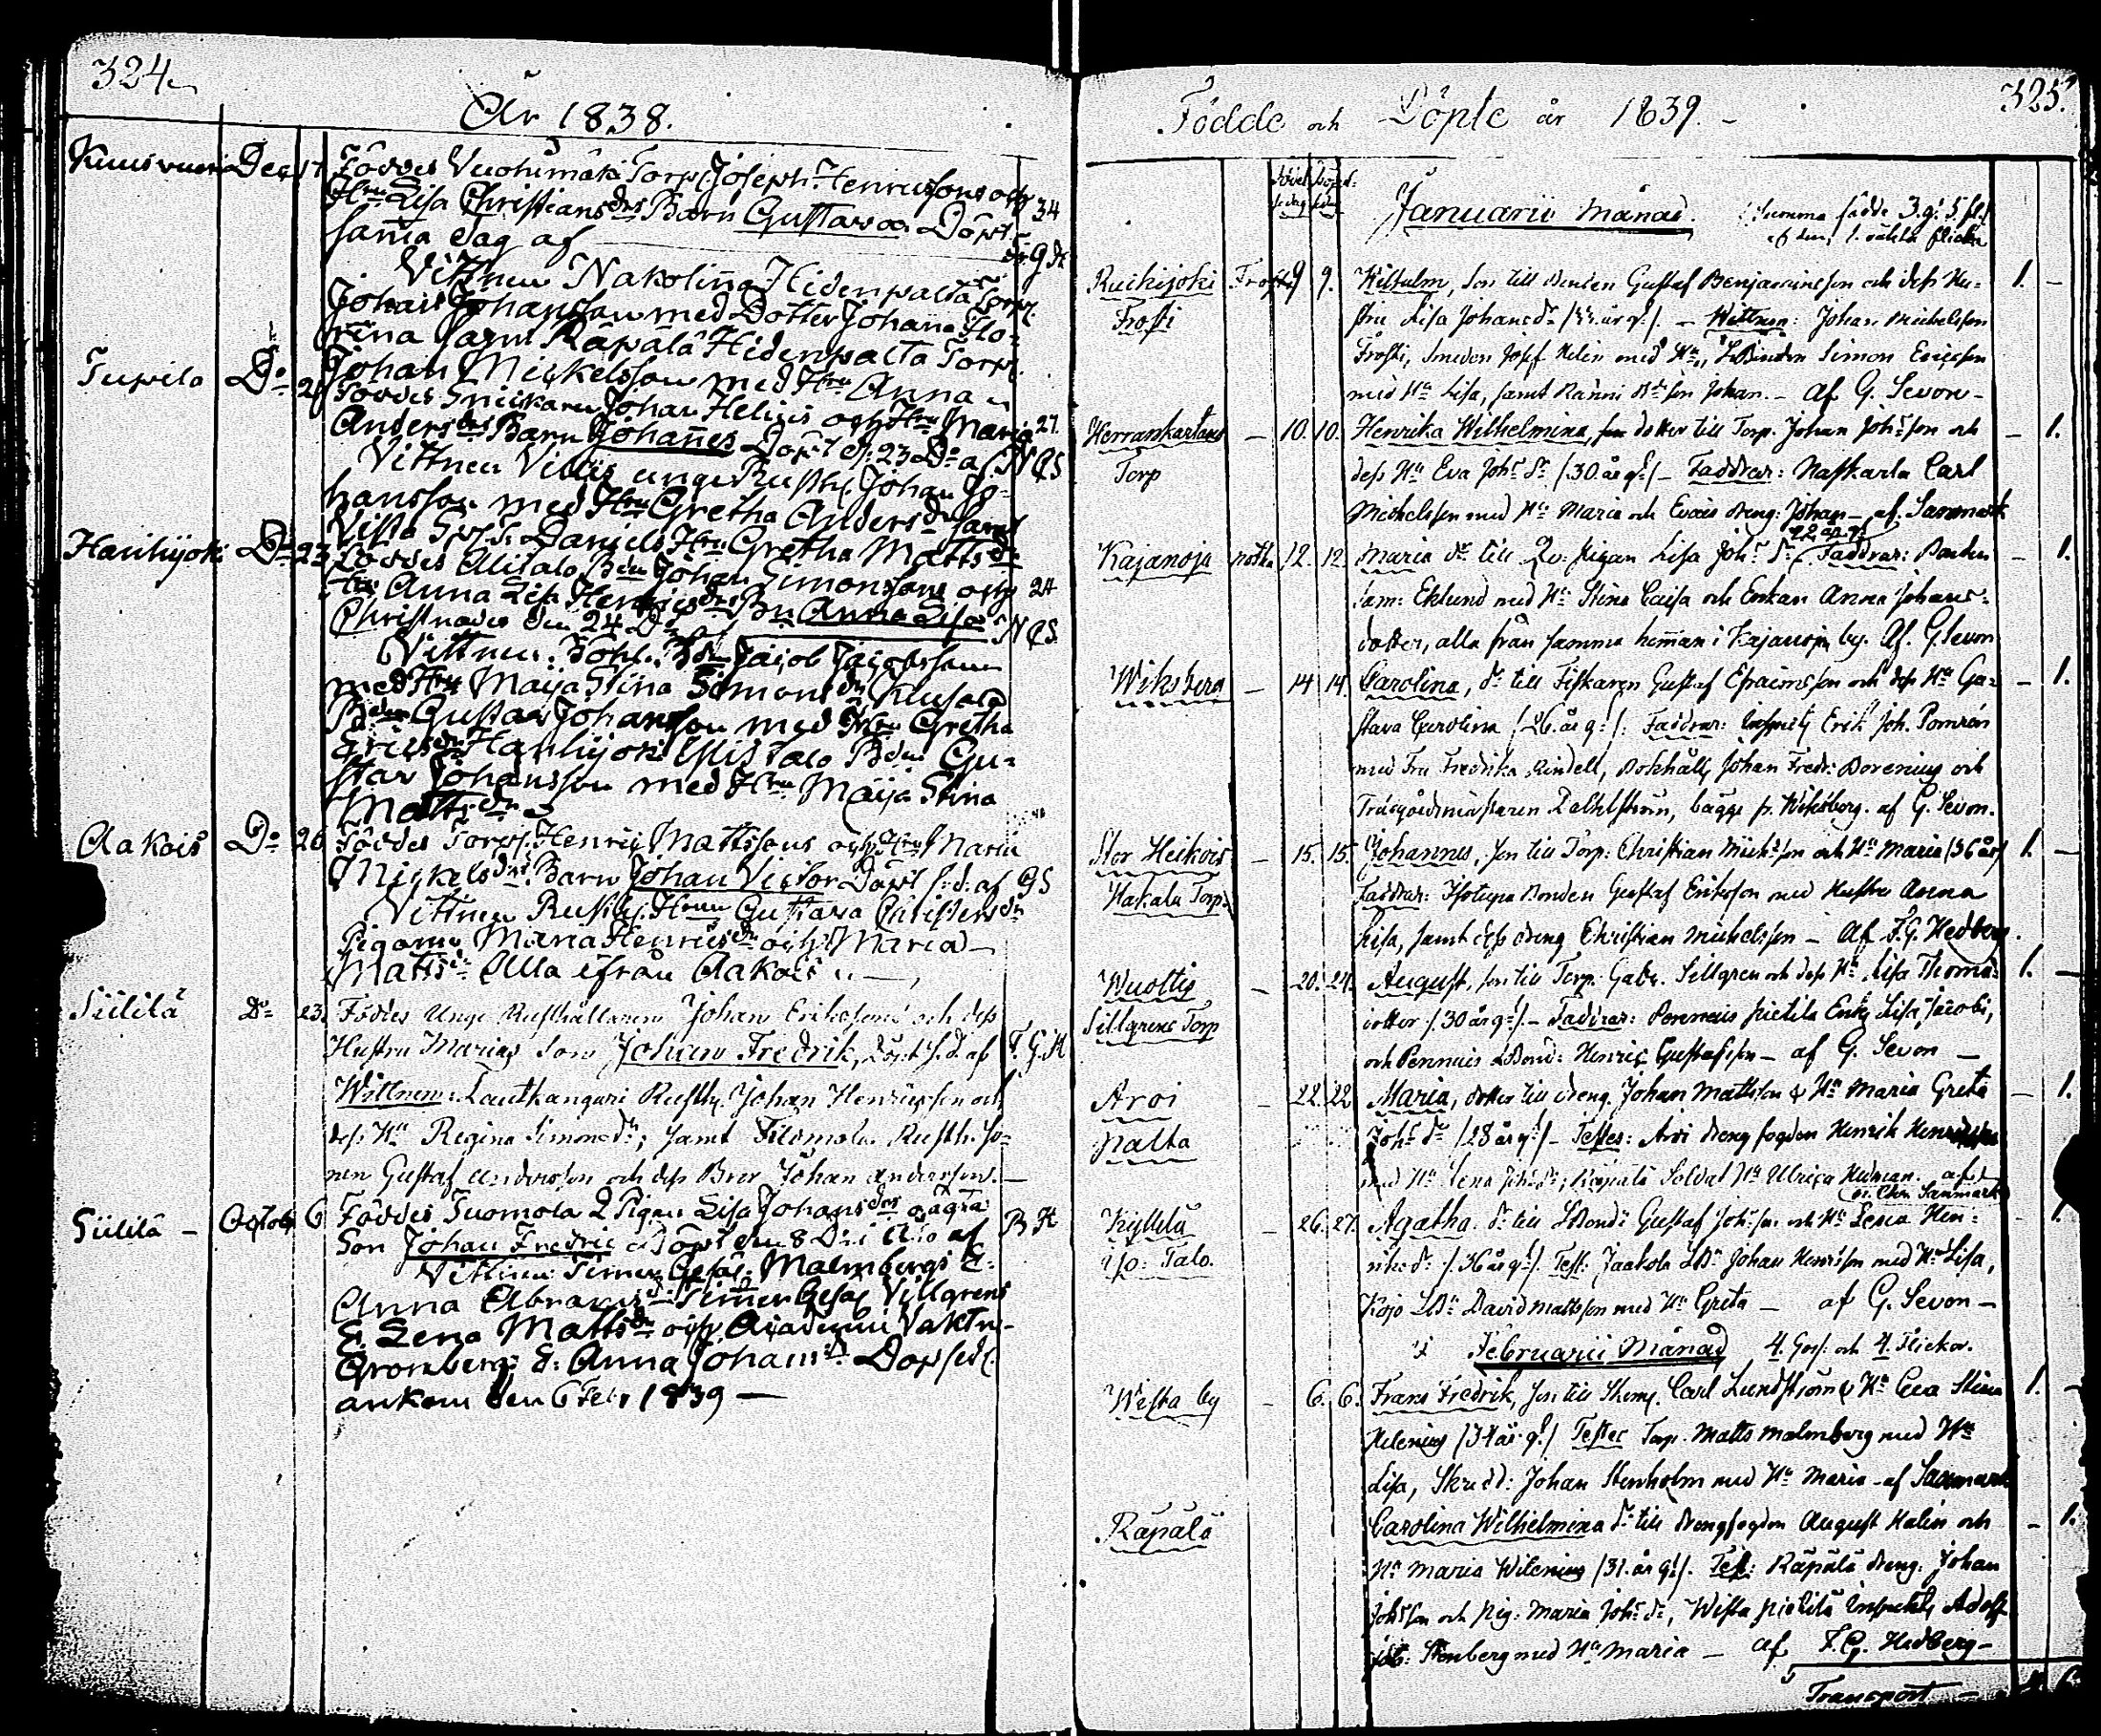 324.
År 1838.
Kuusvuori Dec. 17 Föddes Vuohimäki Torp. Joseph Henricssons och
Hru Lisa Christiansdrs Barn Gustava Döpt 34
samma dag af
Vittnen Nakolinna Hidenpalta Torp.
Johan Johansson med Dotter Johana Flo-
rena samt Räpälä Hidenpalta Torp.
Johan Mickelsson med Hru Anna
Tupila Do 21 Föddes Snickaren Johan Helinis och Hru Maria 27.
Andersdrs Barn Johannes Döpt d. 23 Do af NGS
Vittnen Villis unge Rusth. Johan Jo-
hansson med Hru Gretha Andersdr samt
Vista Daniels Hru Gretha Mattsdr
Hanhijoki Do 23 Föddes Alitalo Bdn Johan Simonssons och 24
Hru Anna Lisa Henricsdrs Bn Anna Lisa NGS
Christnades den 24 Do
Vittnen: Bdn Jacob Jacobsson
med Hru Maija Stina Simonsdr, Klusala
Bdn Gustav Johansson med Hru Gretha
Ericsdr Hanhijoki Ylistalo Bdn Gu-
stav Johansson med Hru Maija Stina
Mattsdr
Aakois Do 26 Föddes Torp. Henric Mattssons och Hru Maria
Mickelsdrs Barn Johan Victor Döpt s. d. af GS
Vittnen Rusth. Hrun Gustava Christersdr
Pigorna Maria Henricsdr och Maria
Mattsdr Alla ifrån Aakois
Siililä Do 23. Föddes Unge Rusthållaren Johan Erikssons och dess
Hustru Marias Son Johan Fredrik, Döpt s. d. af F. G. H
Wittnen: Lautkangari Rusth. Johan Henricsson och
dess Hu Regina Simonsdr, samt Tuomola Rusth. so-
nen Gustaf Andersson och dess Bror Johan Andersson. —
Siililä — Octob 6 Föddes Tuomola 2 Pigan Lisa Johansdrs oägta B H
Son Johan Fredric Döpt den 8 Dni Ao af
Vittnen Timer Gesäl. Malmbergs E.
Anna Abramsdr Timer Gesäl Villgrens
E. Lena Mattsdr och Academi Vaktm.
Gronbergs E. Anna Johansdr. Dopsed.
ankom den 6 Feb. 1839 —
325.
Födde och Döpte år 1839. —
Januarii Månad. Summa födde 3 g. 5 fl.
af dem 1. oäkta flicka
Ruikijoki Frosti 9 9. Wilhelm, son till Bonden Gustaf Benjaminsson och dess Hu- 1. —
Frosti stru Lisa Johansdr — Wittnen: Johan Michelsson
Frosti, Smeden Josef Helin med Hu, LBonden Simon Ericsson
med Hu Lisa, samt Ränni Bdsson Johan. — Af G. Sevon —
Herrankartano — 10. 10. Henrika Wilhelmina, dotter till Torp. Johan Johsson och — 1.
Torp dess Hu Eva Johsdr /30 år g:/ — Faddrar: Naskarla Carl
Michelsson med Hu Maria och Evais dreng: Johan — af Sammark
22 år g.
Kajanoja 12. 12. Maria dr till Qv. pigan Lisa Johsdr Faddrar: Bonden — 1.
Sam: Eklund med Hu Stina Caisa och Enkan Anna Johans-
dotter, alla från samma hemman i Kajanoja by. Af. G. Sevon
Wiksberg — 14 14. Carolina, dr till Fiskaren Gustaf Efraimsson och dess Hu Gu- — 1.
stava Carolina /26 år g:/: Faddrar: Inspect. Erik Joh. Pomrén
med Fru Fredrika Rindell, Bokhåll. Johan Fredr: Dorenius och
Trädgårdmästaren Dahlström, bägge fr. Wiksberg. af G. Sevon.
Stor Heikois — 15. 15. Johannes, son till Torp: Christian Michsson och Hu Maria /36 år/ 1. —
Hakala Torp. Faddrar: Isotupa Bonden Gustaf Eriksson med Hustru Anna
Lisa, samt dess dreng Christian Michelsson — Af F. G. Hedberg.
Wuottis — 20. 24. August, son till Torp. Gabr. Sillgren och dess Hu Lisa Thoms- 1. —
Sillgrens Torp dotter /30 år g:/ — Faddrar: Pennais pietilä Enk. Lisa Jacobs,
och Pennais LBond: Henric Gustafsson — af G. Sevon —
Aroi — 22. 22 Maria, dotter till dreng. Johan Mattsson & Hu Maria Greta — 1.
palta Johsdr /28 år g:/ — Testes: Aroi drengfogden Henrik Henriksson
med Hu Lena Johsdr, Räpälä Soldat Hu Ulrica Hedman. af
Sammark
Kyllelä — 26. 27. Agatha. dr till LBond: Gustaf Johsson och Hu Lena Hen- — 1.
iso-Talo. riksdr /36 år g:/. Test: Jaakola LBdn Johan Henrsson med Hu Lisa,
Kojo LBdn David Mattsson med Hu Greta — af G. Sevon —
Februarii Månad 4. Goss. och 4. Flickor.
Wista by — 6. 6. Frans Fredrik, son till Skom. Carl Lundström & Hu Eva Stina 1. —
Helenius /34 år g:/ Testes Torp. Matts Malmberg med Hu
Lisa, Skredd: Johan Stenholm med Hu Maria — af Sammark
Räpälä Carolina Wilhelmina dr till drengfogden August Malin och — 1.
Hu Maria Wilenius /31. år g:/. Test: Räpälä dreng. Johan
Johsson och pig: Maria Johsdr, Wista pietilä Inspect. Adolf
Joh: Stenberg med Hu Maria — af F. G. Hedberg —
Transport — 1. 1.